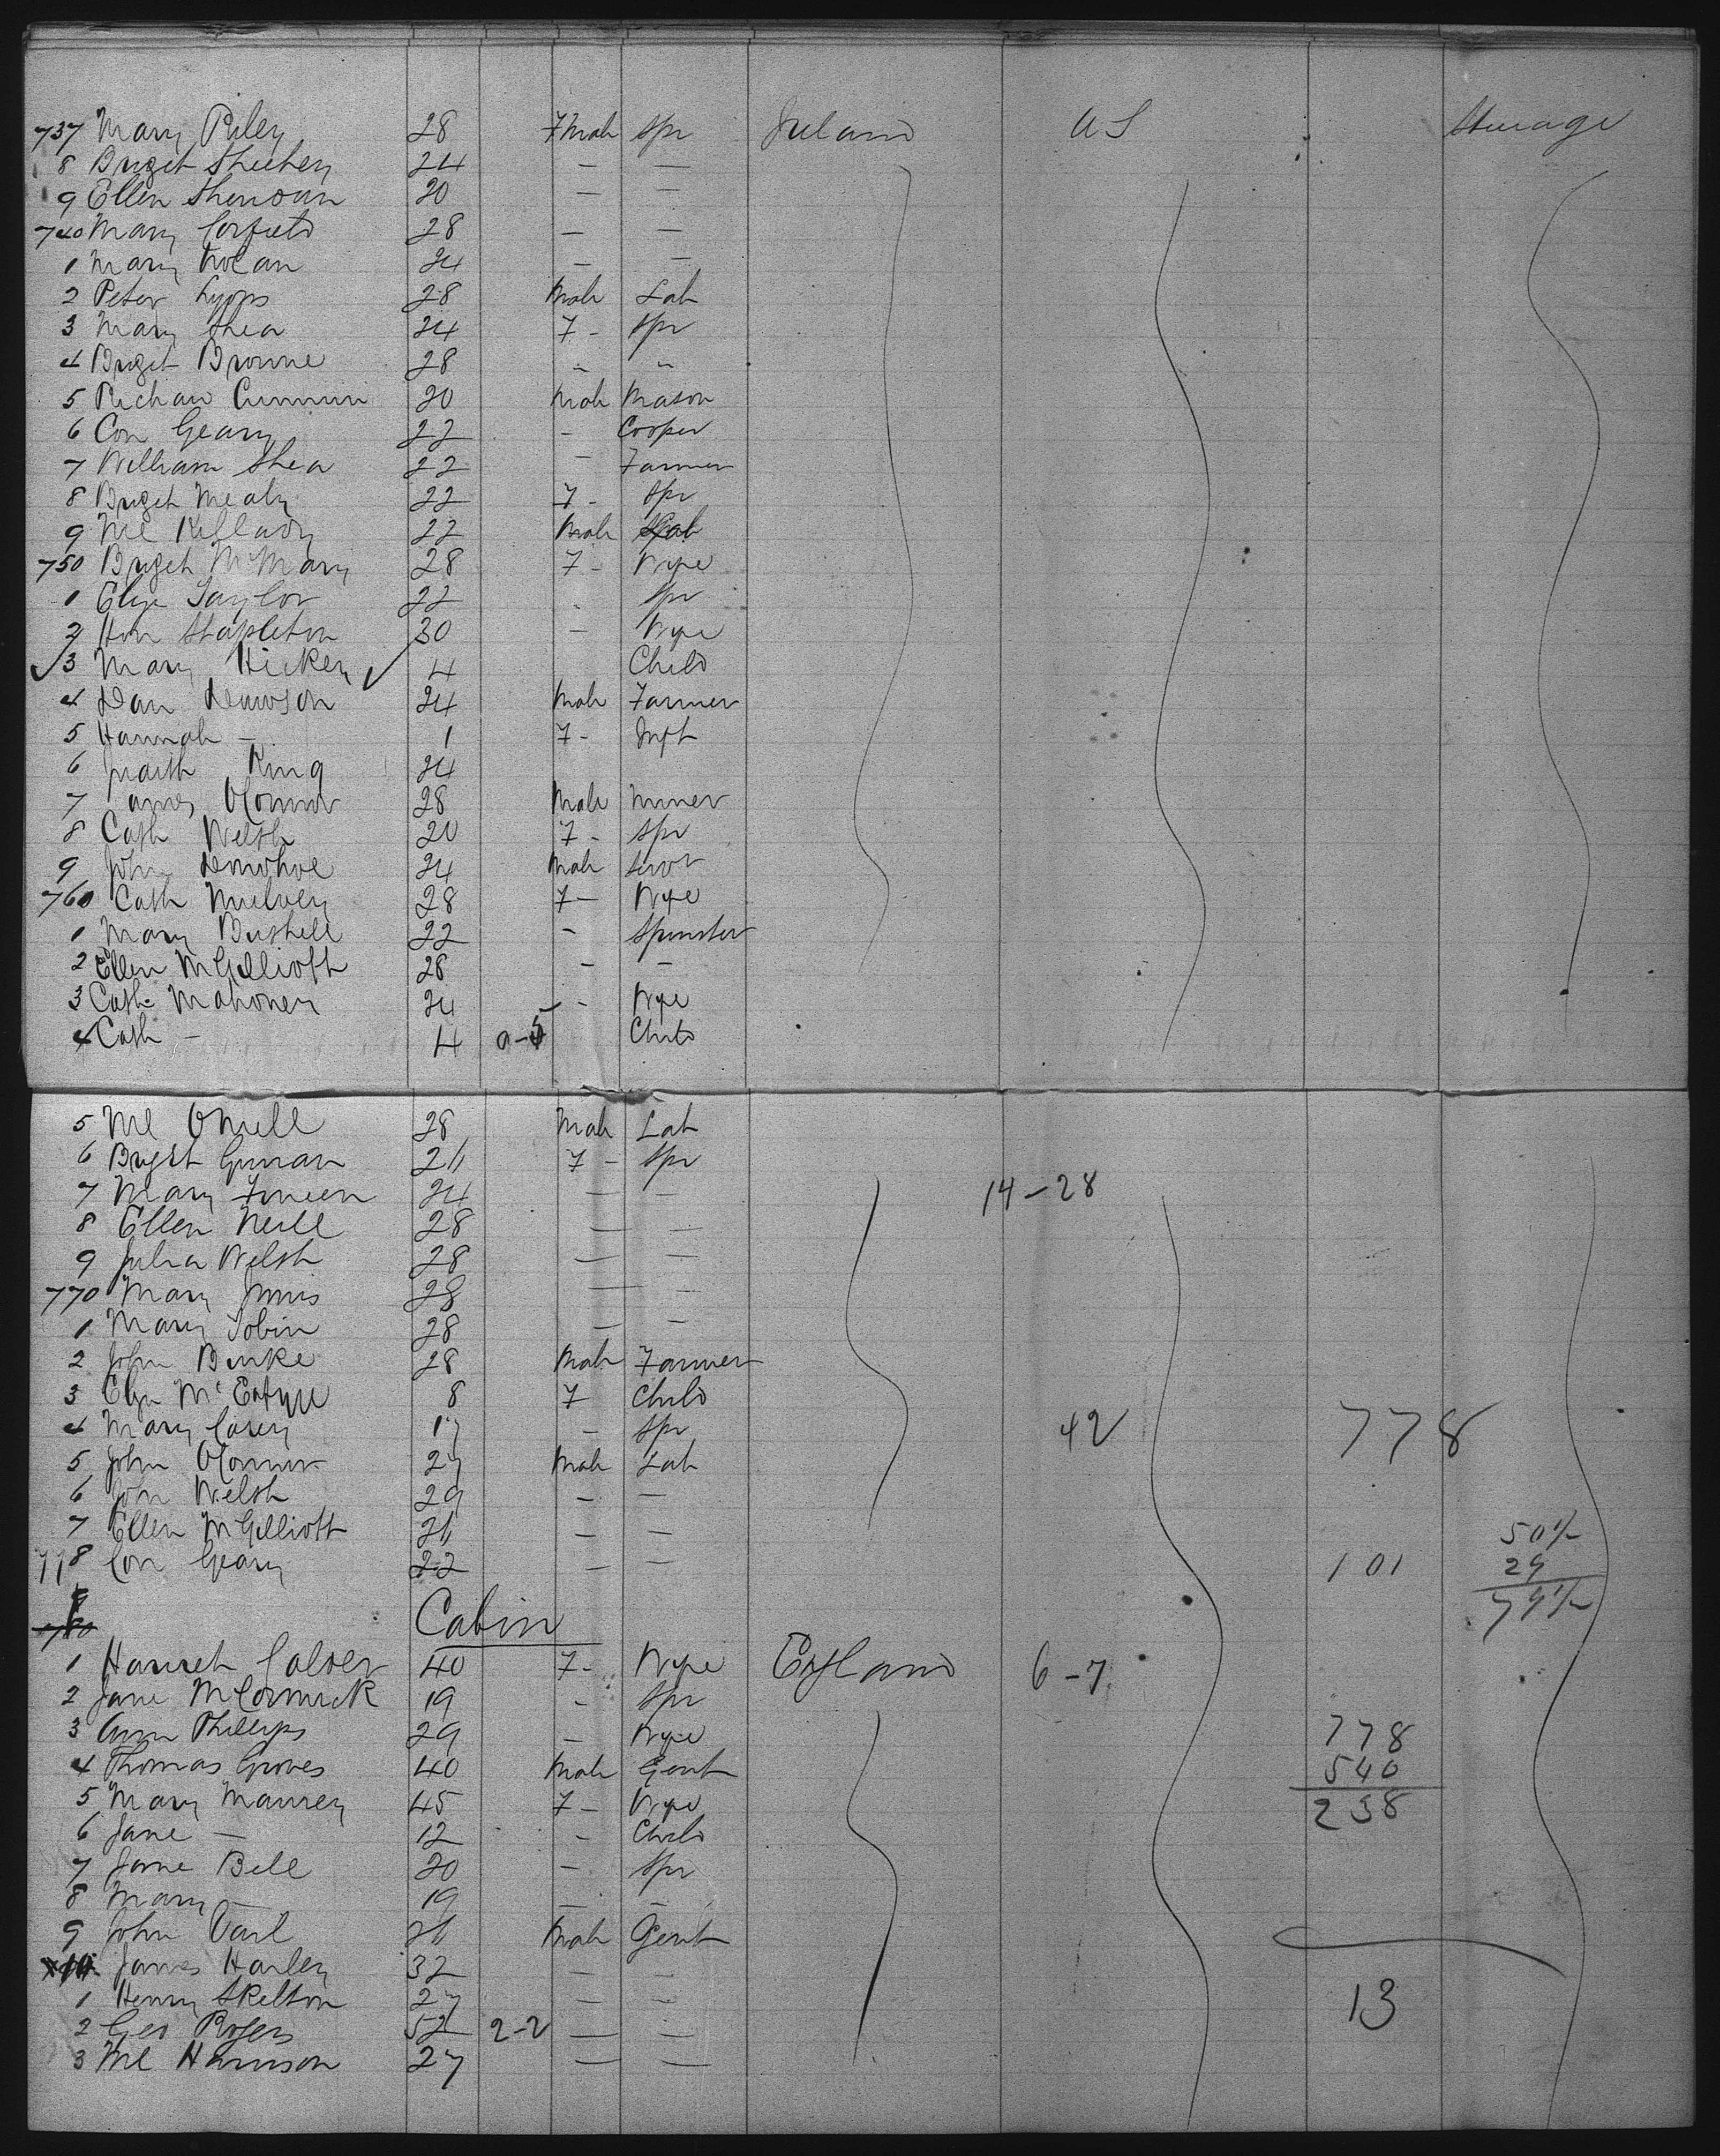 737 Mary Riley 28 Fmale Spr Ireland US Steerage
8 Briget Sheehey 24 — —
9 Ellen Sheridan 20 — —
740 Mary Corfield 28 — —
1 Mary Nolan 24 — —
2 Peter 28 Male Lab
3 Mary Shea 24 F - Spr
4 Briget Browne 28 - -
5 Richard Cummin 20 Male Mason
6 Con Geary 22 - Cooper
7 William Shea 22 - Farmer
8 Briget Mealy 22 F - Spr
9 Ml 22 Male Lab
750 Briget McMary 28 F - Wife
1 Eliza Taylor 22 - Spr
2 Hon Stapleton 30 — Wife
3 Mary Hickey 4 Child
4 Dan Dawson 24 Male Farmer
5 Hannah — 1 F - Inft
6 Judith King 24
7 James OConnor 28 Male Miner
8 Cath Welsh 20 F - Spr
9 John Donohoe 24 Male Servt
760 Cath Mulvey 28 F — Wife
1 Mary Bushell 22 - Spinster
2 Ellen McElliott 28 — —
3 Cath Mahoney 24 - Wife
4 Cath — 4 0-5 Child
5 Ml ONeill 28 Male Lab
6 Briget 26 F - Spr
7 Mary Fineen 24 — — 14-28
8 Ellen Neill 28 — —
9 Julia Welsh 28 — —
770 Mary Innis 28 — —
1 Mary Tobin 28 — —
2 John Burke 28 Male Farmer
3 Eliza McEntyre 8 F Child
4 Mary Casey 17 - Spr 42 778
5 John OConnor 27 Male Lab
6 John Welsh 29 - —
7 Ellen McElliott 26 — — 50½
778 Con Geary 22 — — 101 29
9 79½
780 Cabin
1 Harriet Calver 40 F - Wife England 6-7
2 Jane McCormick 19 - Spr
3 Ann Phillips 29 — Wife 778
4 Thomas Groves 40 Male Gent 540
5 Mary Maurey 45 F — Wife 238
6 Jane — 12 - Child
7 Jane Bell 20 — Spr
8 Mary — 19 — —
9 John Varl 26 Male Gent
10 James Harley 32 — —
1 Henry Skelton 27 — — 13
2 Geo Rogers 52 2-2 — —
3 Ml Harrison 27 — —